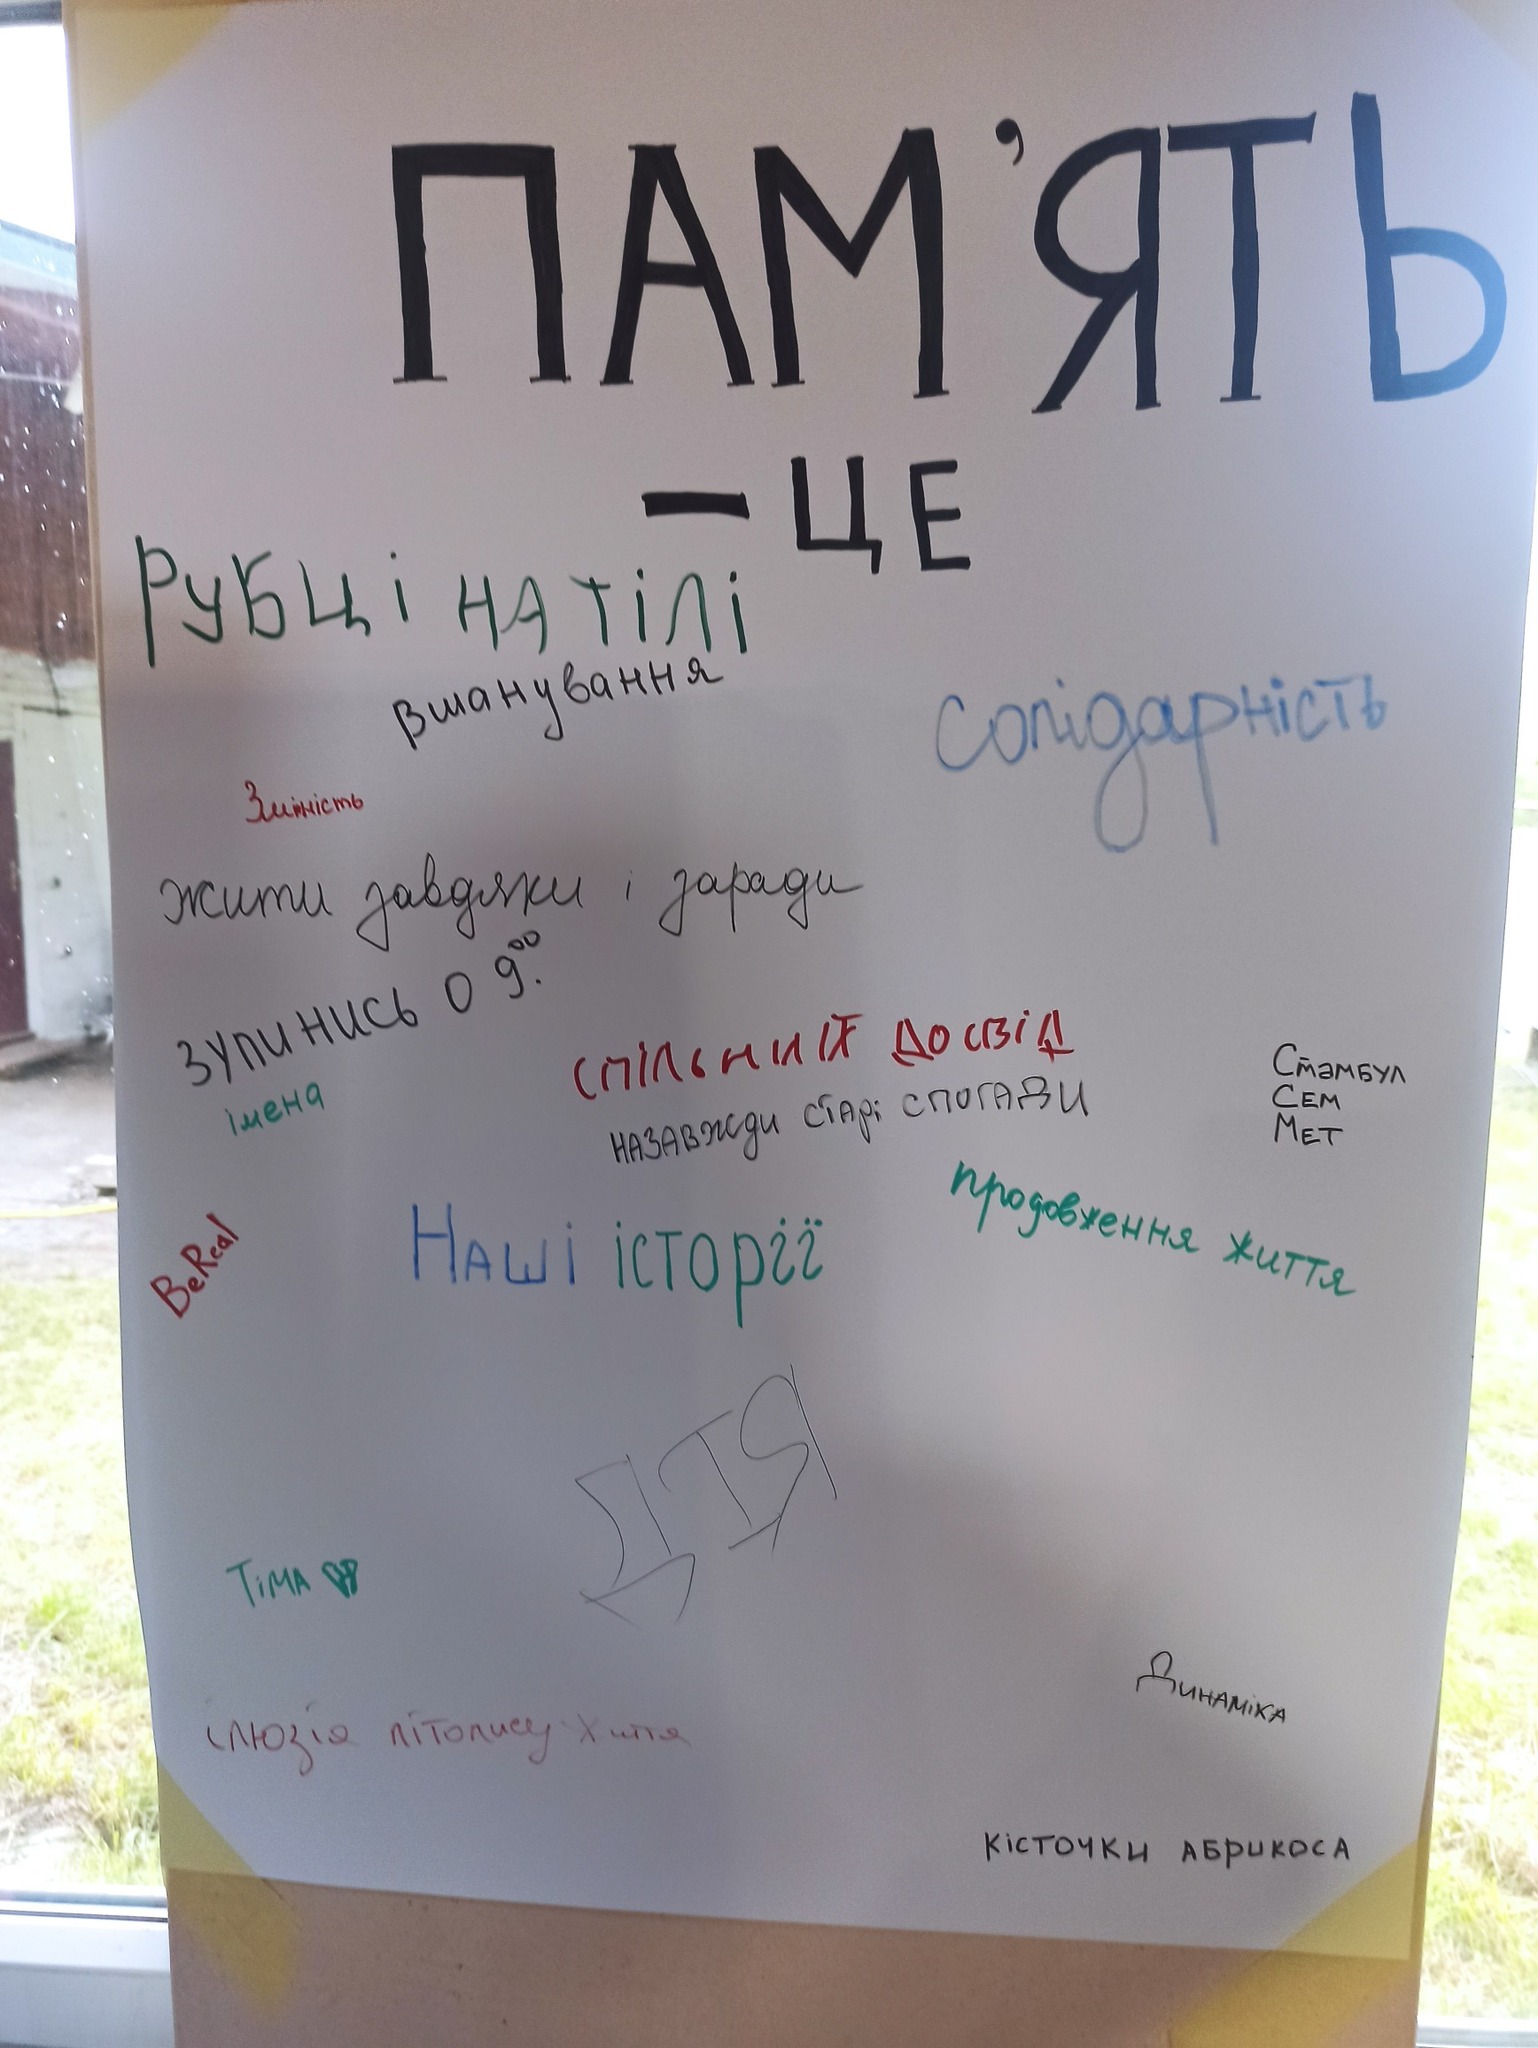 ПАМ'ЯТЬ
– ЦЕ
РУБЦІ НА ТІЛІ
вшанування
Солідарність
Змінність
жити завдяки і заради
ЗУПИНИСЬ О 9.00
імена
СПІЛЬНИЙ ДОСВІД
НАЗАВЖДИ СТАРІ СПОГАДИ
СТАМБУЛ
СЕМ
МЕТ
продовження життя
BeReal
НАШІ ІСТОРІЇ
ДТЯ
ТІМА
ДИНАМІКА
ілюзія літопису життя
КІСТОЧКИ АБРИКОСА